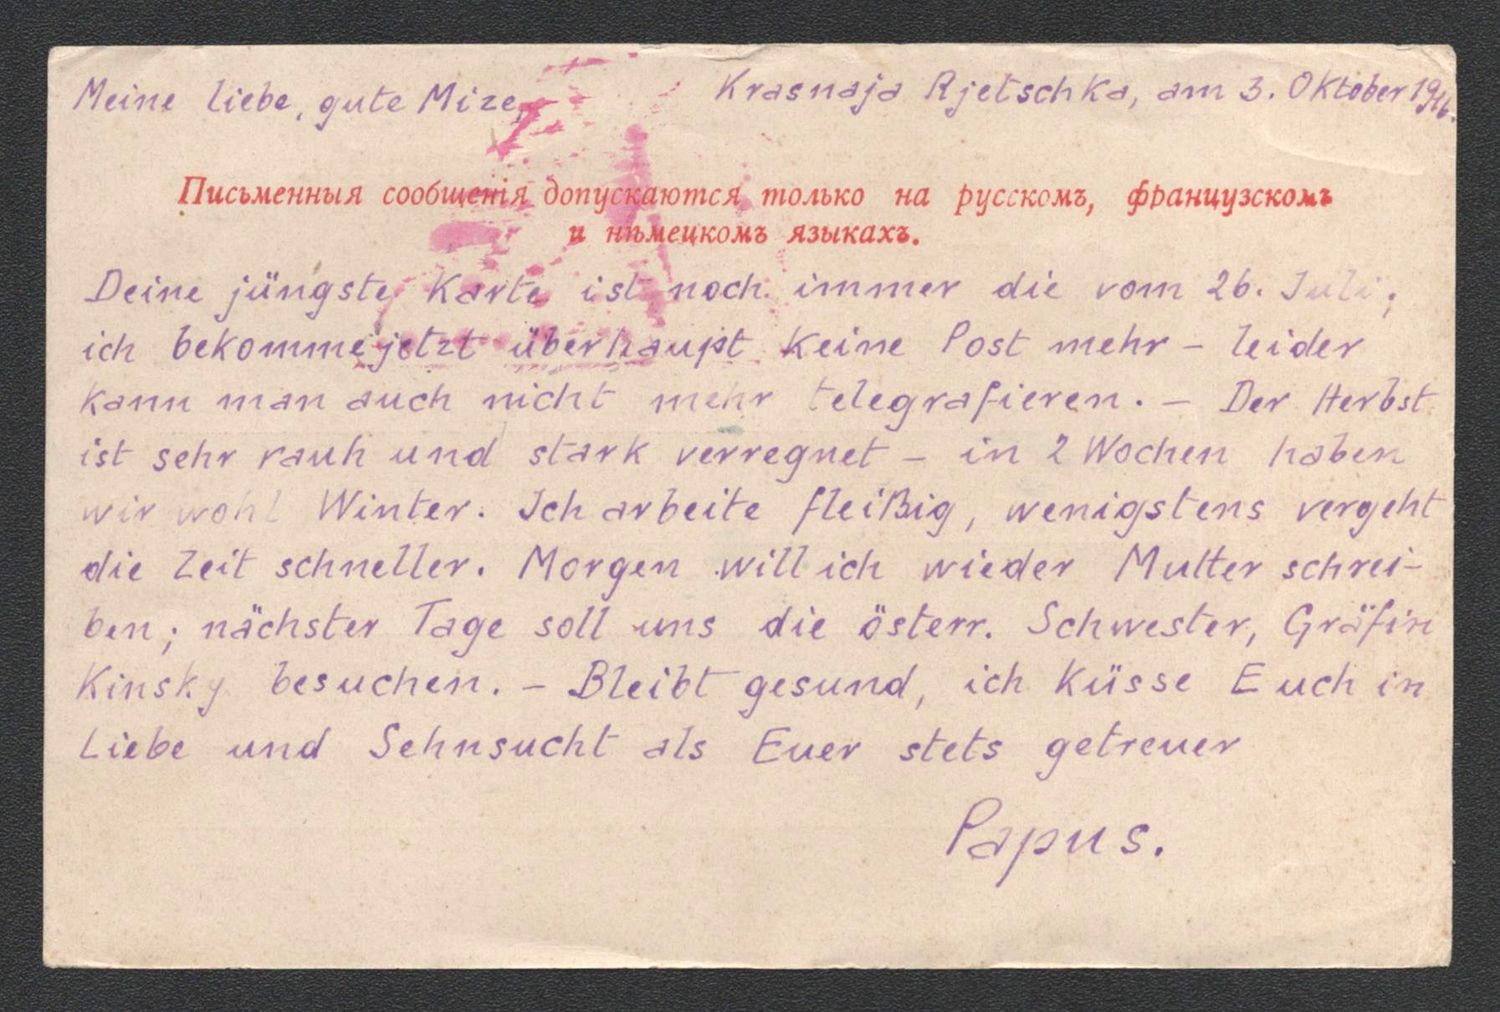 Meine liebe, gute Mize, Krasnaja Rjetschka, am 3. Oktober 1916.
Письменныя сообщенія допускаются только на русскомъ, французскомъ
и нѣмецкомъ языкахъ.
Deine jüngste Karte ist noch immer die vom 26. Juli,
ich bekomme jetzt überhaupt keine Post mehr – leider
kann man auch nicht mehr telegrafieren. – Der Herbst
ist sehr rauh und stark verregnet – in 2 Wochen haben
wir wohl Winter. Ich arbeite fleißig, wenigstens vergeht
die Zeit schneller. Morgen will ich wieder Mutter schrei-
ben; nächster Tage soll uns die österr. Schwester, Gräfin
Kinsky besuchen. – Bleibt gesund, ich küsse Euch in
Liebe und Sehnsucht als Euer stets getreuer
Papus.